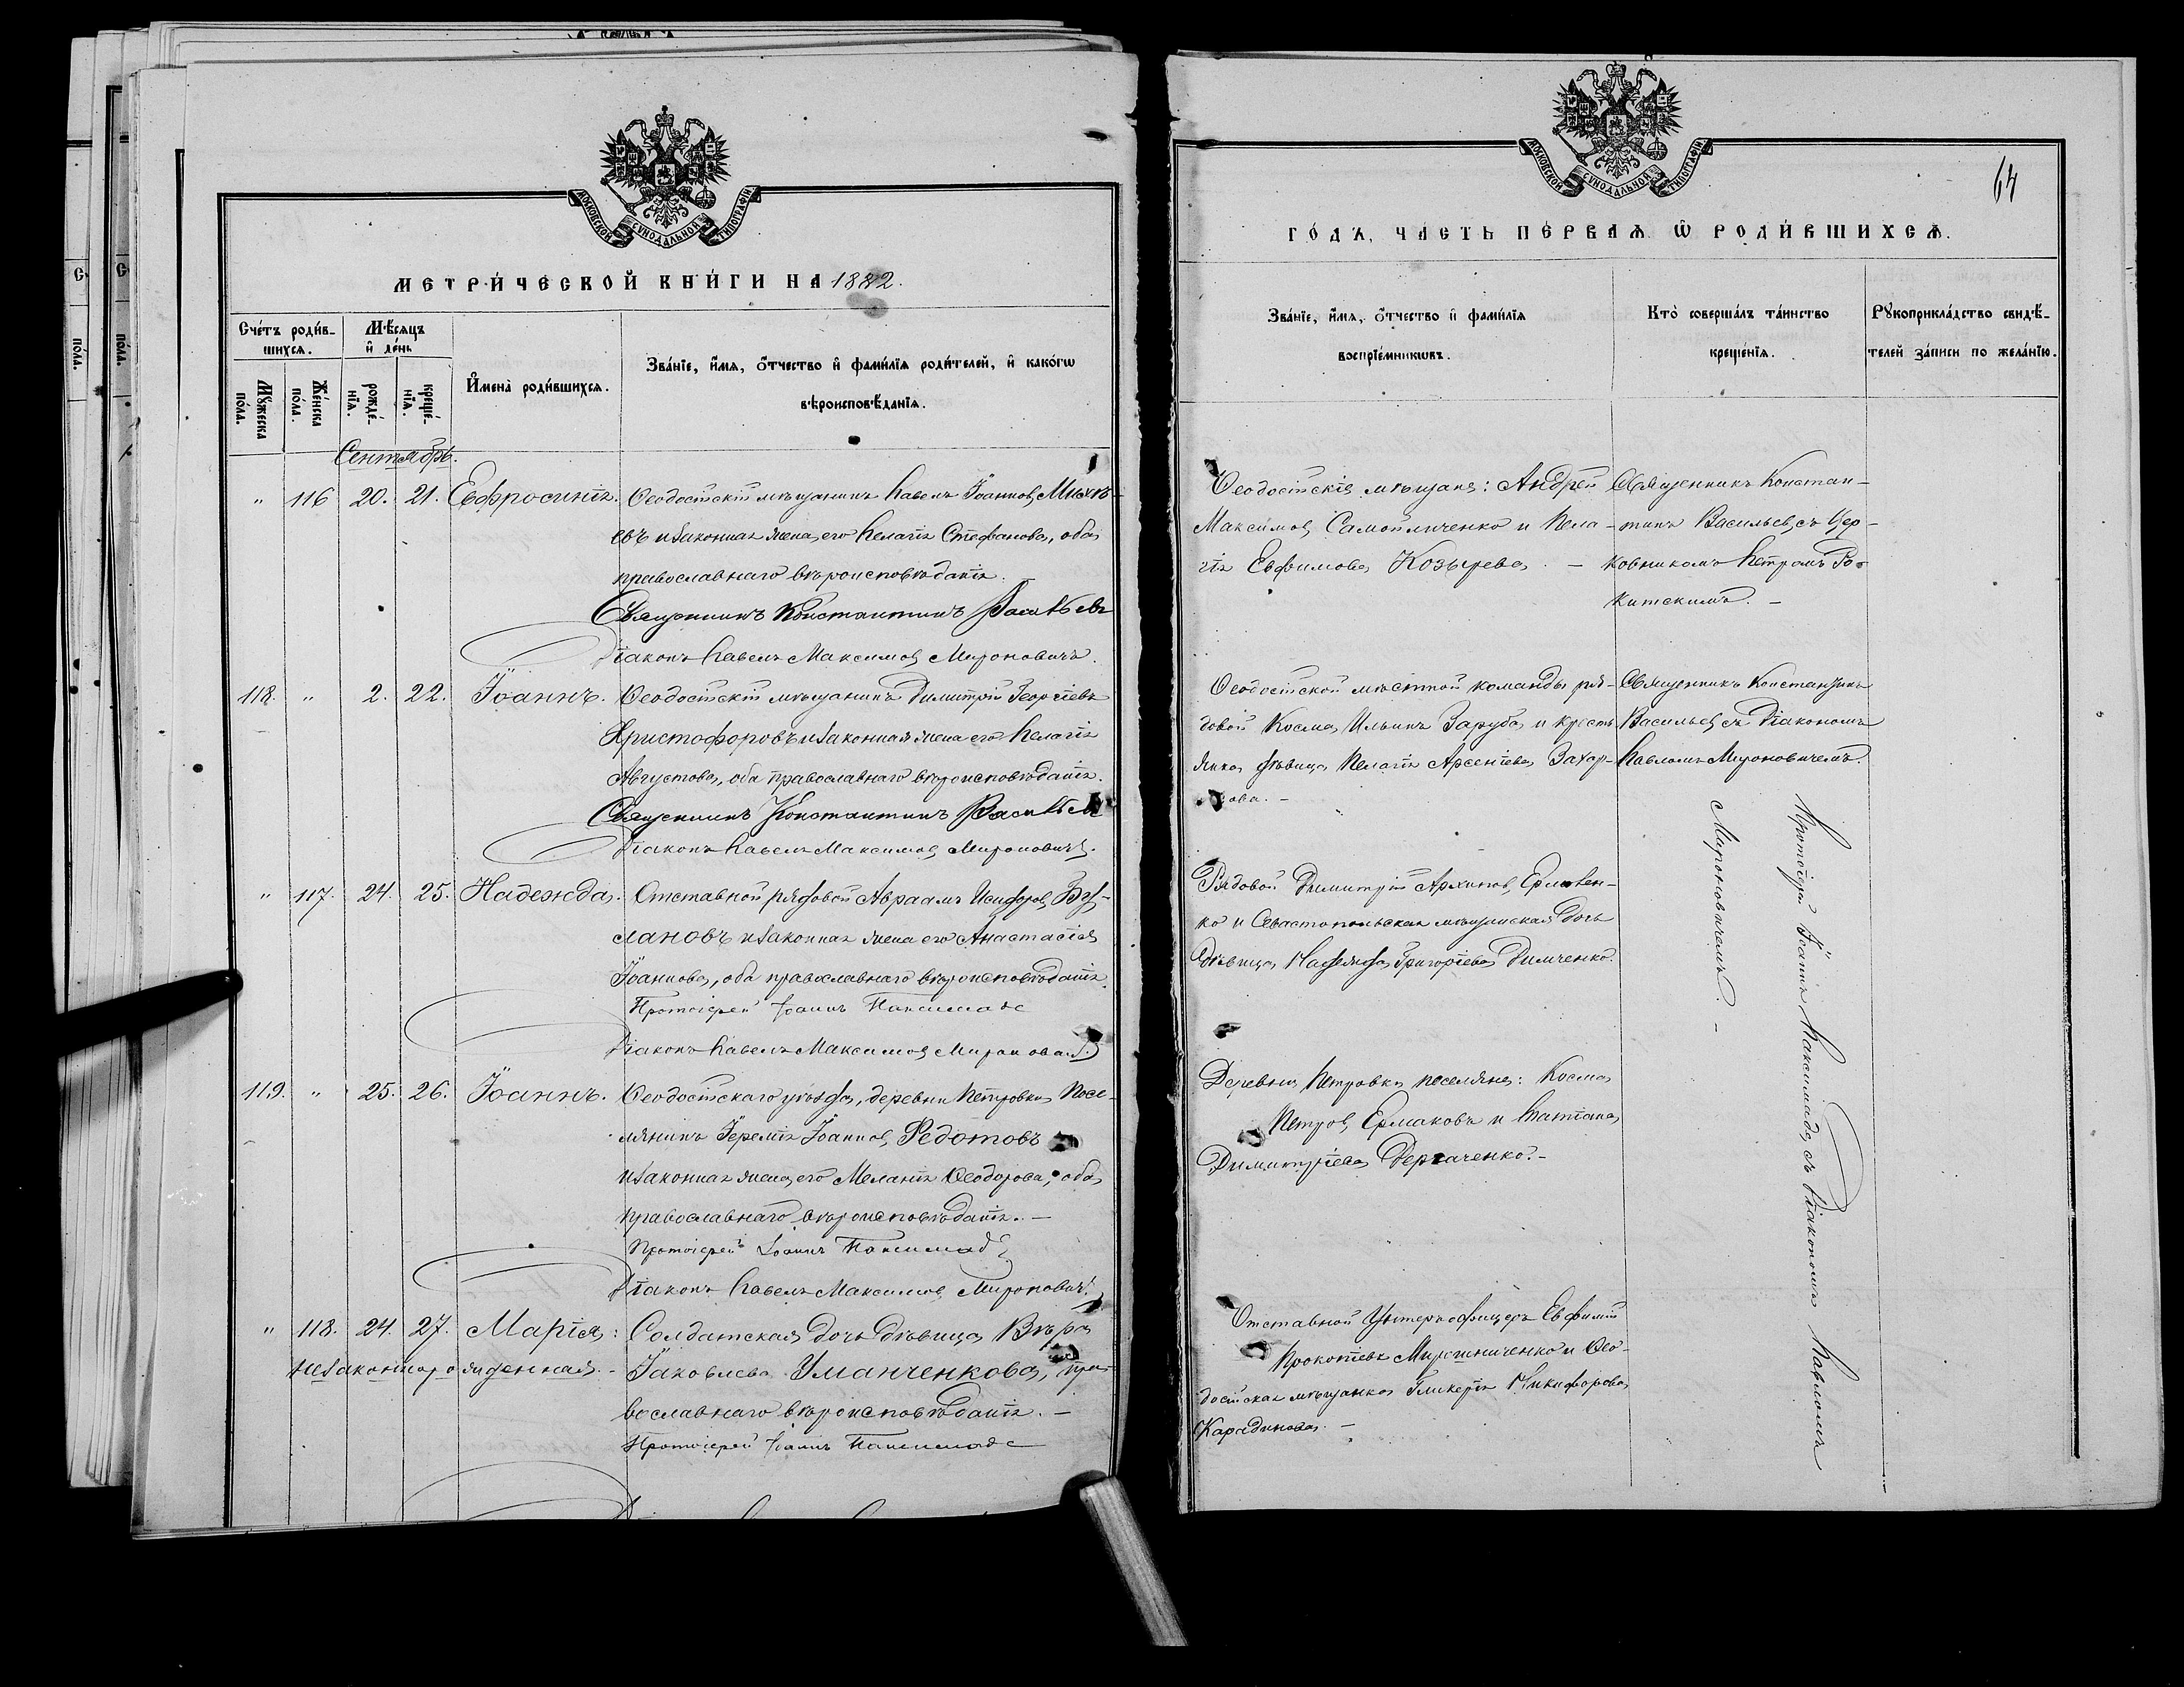 МОСКОВСКОЙ СѴНОДАЛЬНОЙ ТИПОГРАФІИ
МЕТРИ́ЧЕСКОЙ КНИ́ГИ НА 1882.
Сче́тъ роди́в-
шихся.
Мѣ́сяцъ
и҆ де́нь
Мꙋ́жеска
по́ла.
Же́нска
по́ла.
рожде́-
нїя.
креще́-
нїя.
И҆мена̀ роди́вшихся.
Зва́нїе, и҆́мя, ѻ҆́тчество и҆ фами́лїя роди́телей, и҆ како́гѡ
вѣроисповѣ́данїя.
Сентябрь.
" 116 20. 21. Евфросинія. Ѳеодосійскій мѣщанинъ Павелъ Іоанновъ
евъ и законная жена его Пелагія Стефанова, оба
православнаго вѣроисповѣданія.
Священникъ Константинъ Васильевъ
Діаконъ Павелъ Максимовъ Мироновичъ.
118. " 2. 22. Іоаннъ. Ѳеодосійскій мѣщанинъ Димитрій Георгіевъ
Христофоровъ и законная жена его Пелагія
Августова, оба православнаго вѣроисповѣданія.
Священникъ Константинъ Васильевъ
Діаконъ Павелъ Максимовъ Мироновичъ.
" 117. 24. 25. Надежда. Отставной рядовой Авраамъ Исидоровъ
слановъ и законная жена его Анастасія
Іоаннова, оба православнаго вѣроисповѣданія.
Протоіерей Іоаннъ
Діаконъ Павелъ Максимовъ Мироновичъ
119. " 25. 26. Іоаннъ. Ѳеодосійскаго уѣзда, деревни Петровки посе-
лянинъ Іеремія Іоанновъ Федотовъ
и законная жена его Меланія Ѳеодорова, оба
православнаго вѣроисповѣданія. –
Протоіерей Іоаннъ
Діаконъ Павелъ Максимовъ Мироновичъ.
" 118. 24. 27. Марія: Солдатская дочь дѣвица Вѣра
незаконнорожденная. – Іаковлева Уманченкова, пра-
вославнаго вѣроисповѣданія. –
Протоіерей Іоаннъ
МОСКОВСКОЙ СѴНОДАЛЬНОЙ ТИПОГРАФІИ
64
ГО́ДЪ, ЧА́СТЬ ПЕ́РВАЯ Ѡ҆ РОДИ́ВШИХСЯ.
Зва́нїе, и҆́мя, ѻ҆́тчество и҆ фами́лїя
воспрїе́мникѡвъ.
Кто̀ соверша́лъ та́инство
креще́нїя.
Рꙋкоприкла́дство свидѣ́-
телей за́писи по жела́нїю.
Ѳеодосійскіе мѣщане: Андрей
Максимовъ Самойличенко и Пела-
гія Евфимова Козырева. –
Священникъ Констан-
тинъ Васильевъ съ Цер-
ковникомъ Петромъ Ро-
китскимъ. –
Ѳеодосійской мѣстной команды ря-
довой Косма Ильинъ Заруба и кресть
янка дѣвица Пелагія Арсеніева Захар-
ова. –
Священникъ Константинъ
Васильевъ съ Діакономъ
Павломъ Мироновичемъ.
Рядовой Димитрій Архиповъ Ермолен-
ко и Севастопольская мѣщанская дочь
дѣвица Надежда Григоріева Димченко.
Деревни Петровки поселяне: Косма
Петровъ Ермаковъ и Татіана
Димитріева Дергаченко. –
Отставной Унтеръ-офицеръ Евфимій
Прокопіевъ Мирошниченко и Ѳео-
досійская мѣщанка Гликерія Никифорова
Карадинова. –
Протоіерей Іоаннъ съ Діакономъ Павломъ
Мироновичемъ. –